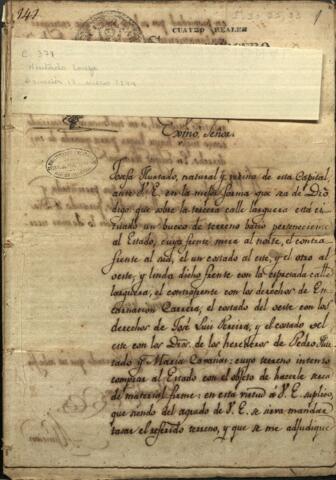 242
1
CUATRO REALES
C. 378
Hurtado Josefa
Exmo. Señor
Josefa Hurtado, natural y vecino de esta Capital,
ante V. E. en la mejor forma que sea de Dro
digo que sobre la tercera calle larguera está si-
tuado un hueco de terreno baldio perteneciente
al Estado, cuyo frente mira al norte, el contra
frente al sud, el un costado al este, y el otro al
oeste, y linda dicho frente con la expresada calle
larguera, el contrafrente con los derechos de En-
carnacion Carrera, el costado del oeste con los
derechos de José Luis Pereira, y el costado del
este con los Dros. de los herederos de Pedro Hur-
tado y Maria Cavañas: cuyo terreno intento
comprar al Estado con el objeto de hacerle casa
de material firme: en esta virtud a V. E. suplico,
que siendo del agrado de V. E. se sirva mandar
tasar el referido terreno, y que se me adjudique